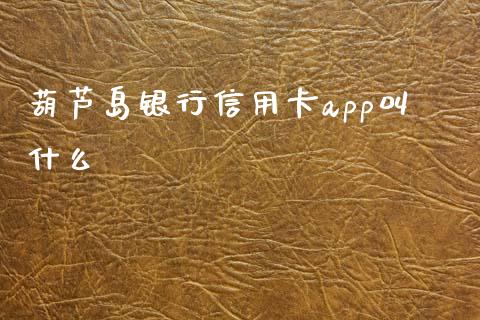 葫芦岛银行信用卡app叫
什么